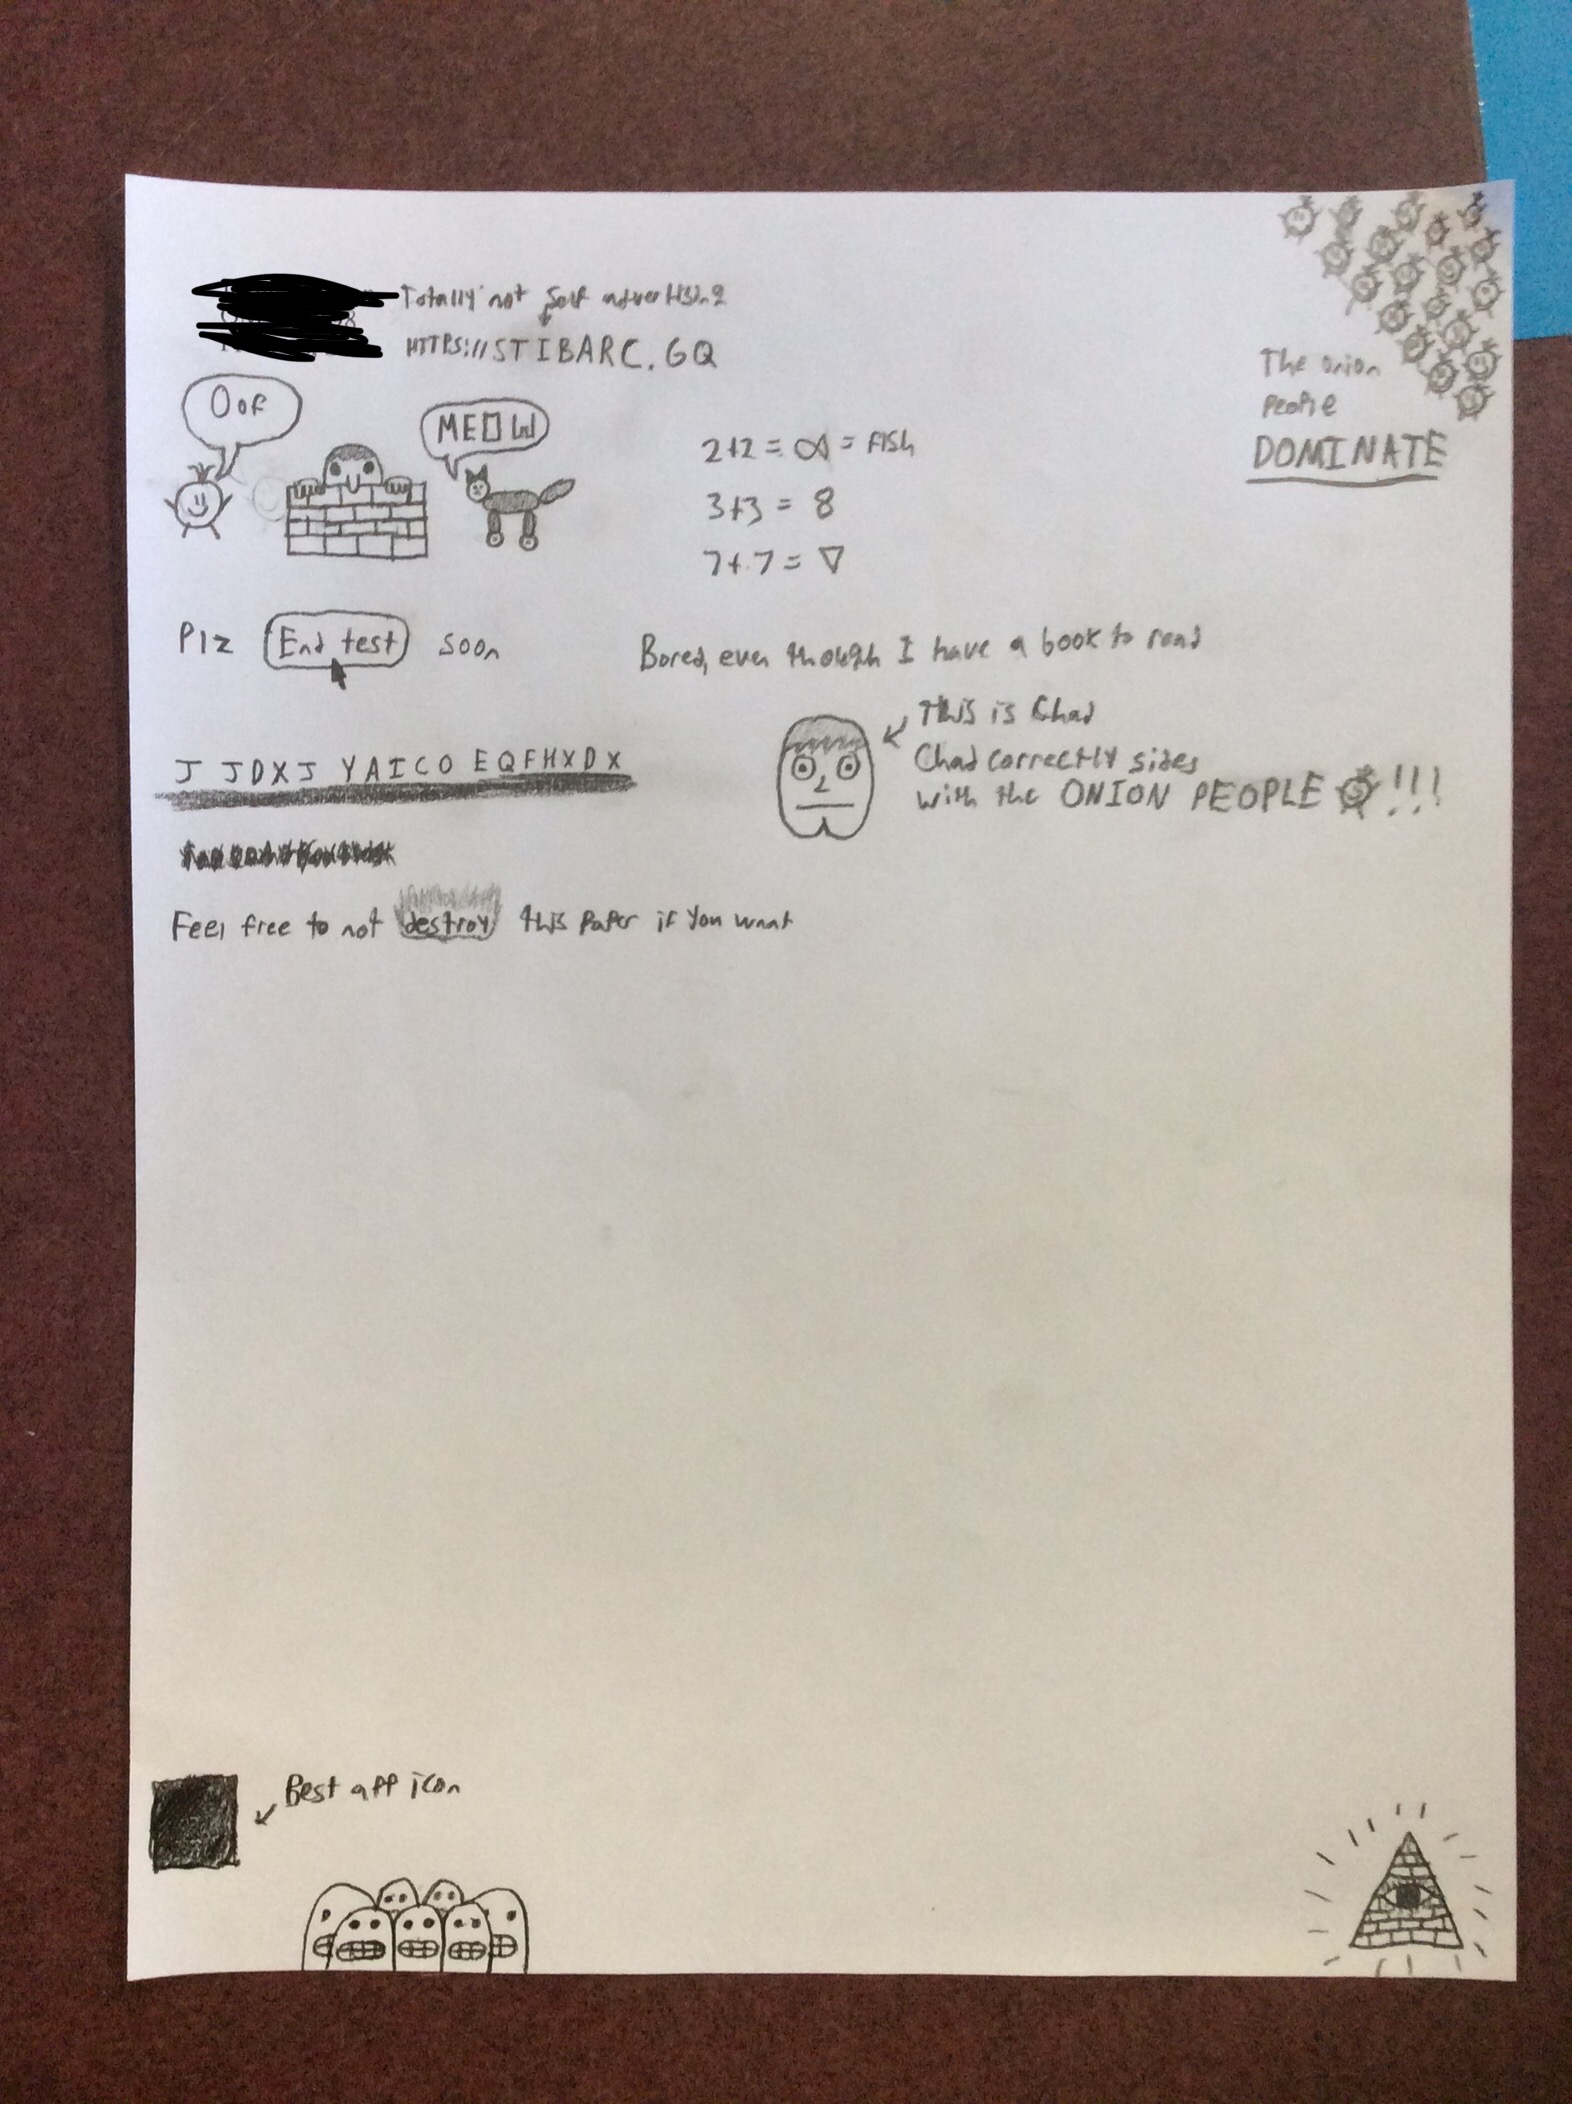 Totally not self advertising
HTTPS://STIBARC.GQ
Oof
MEOW
2+2 = ∝ = FISH
3+3 = 8
7+7 = ▽
The onion
people
DOMINATE
Plz End test soon
Bored, even though I have a book to read
J JDXJ YAICO EQFHXDX
This is Chad
Chad correctly sides
with the ONION PEOPLE !!!
Feel free to not destroy this paper if you want
Best app icon